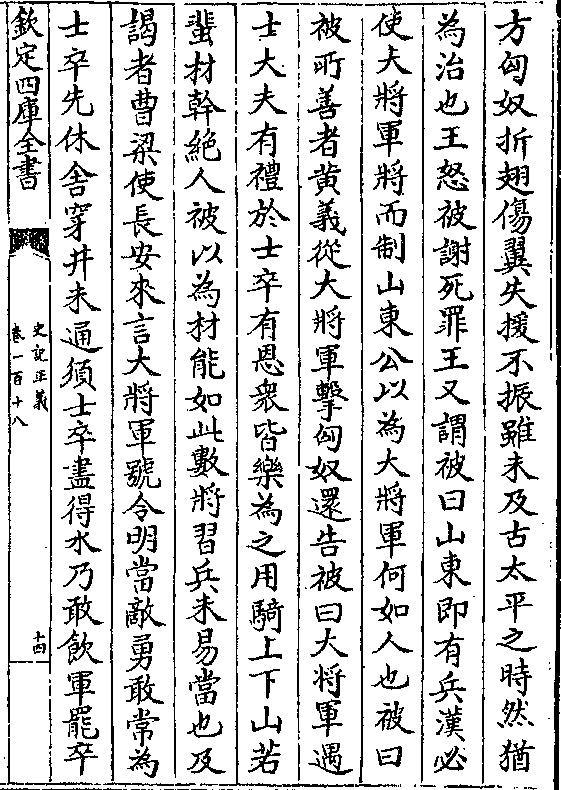 方匈奴折翅傷翼失援不振雖未及古太平之時然猶
為治也王怒被謝死罪王又謂被曰山東即有兵漢必
使大將軍將而制山東公以為大將軍何如人也被曰
被所善者黄義從大將軍擊匈奴還告被曰大將軍遇
士大夫有禮於士卒有恩衆皆樂為之用騎上下山若
蜚材幹絶人被以為材能如此數將習兵未易當也及
謁者曹梁使長安來言大將軍號令明當敵勇敢常為
士卒先休舍穿井未通須士卒盡得水乃敢飲軍罷卒
欽定四庫全書
史記正義
卷一百十八
十四